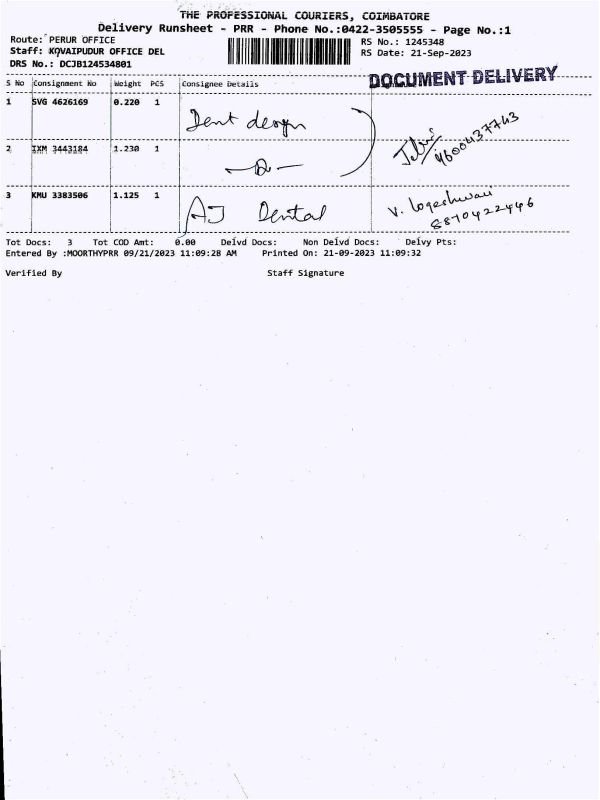 THE PROFESSIONAL COURIERS, COIMBATORE
Delivery Runsheet - PRR - Phone No.:0422-3505555 - Page No.:1
Route: PERUR OFFICE
RS No.: 1245348
Staff: KOVAIPUDUR OFFICE DEL
RS Date: 21-Sep-2023
DRS No.: DCJB124534801
DOCUMENT DELIVERY
S No Consignment No Weight PCS Consignee Details
1 SVG 4626169 0.220 1 Dent design
9600437743
2 IXM 3443184 1.230 1
3 KMU 3383506 1.125 1 AJ Dental V. Logeshwari
8870422446
Tot Docs: 3 Tot COD Amt: 0.00 Delvd Docs: Non Delvd Docs: Delvy Pts:
Entered By :MOORTHYPRR 09/21/2023 11:09:28 AM Printed On: 21-09-2023 11:09:32
Verified By Staff Signature